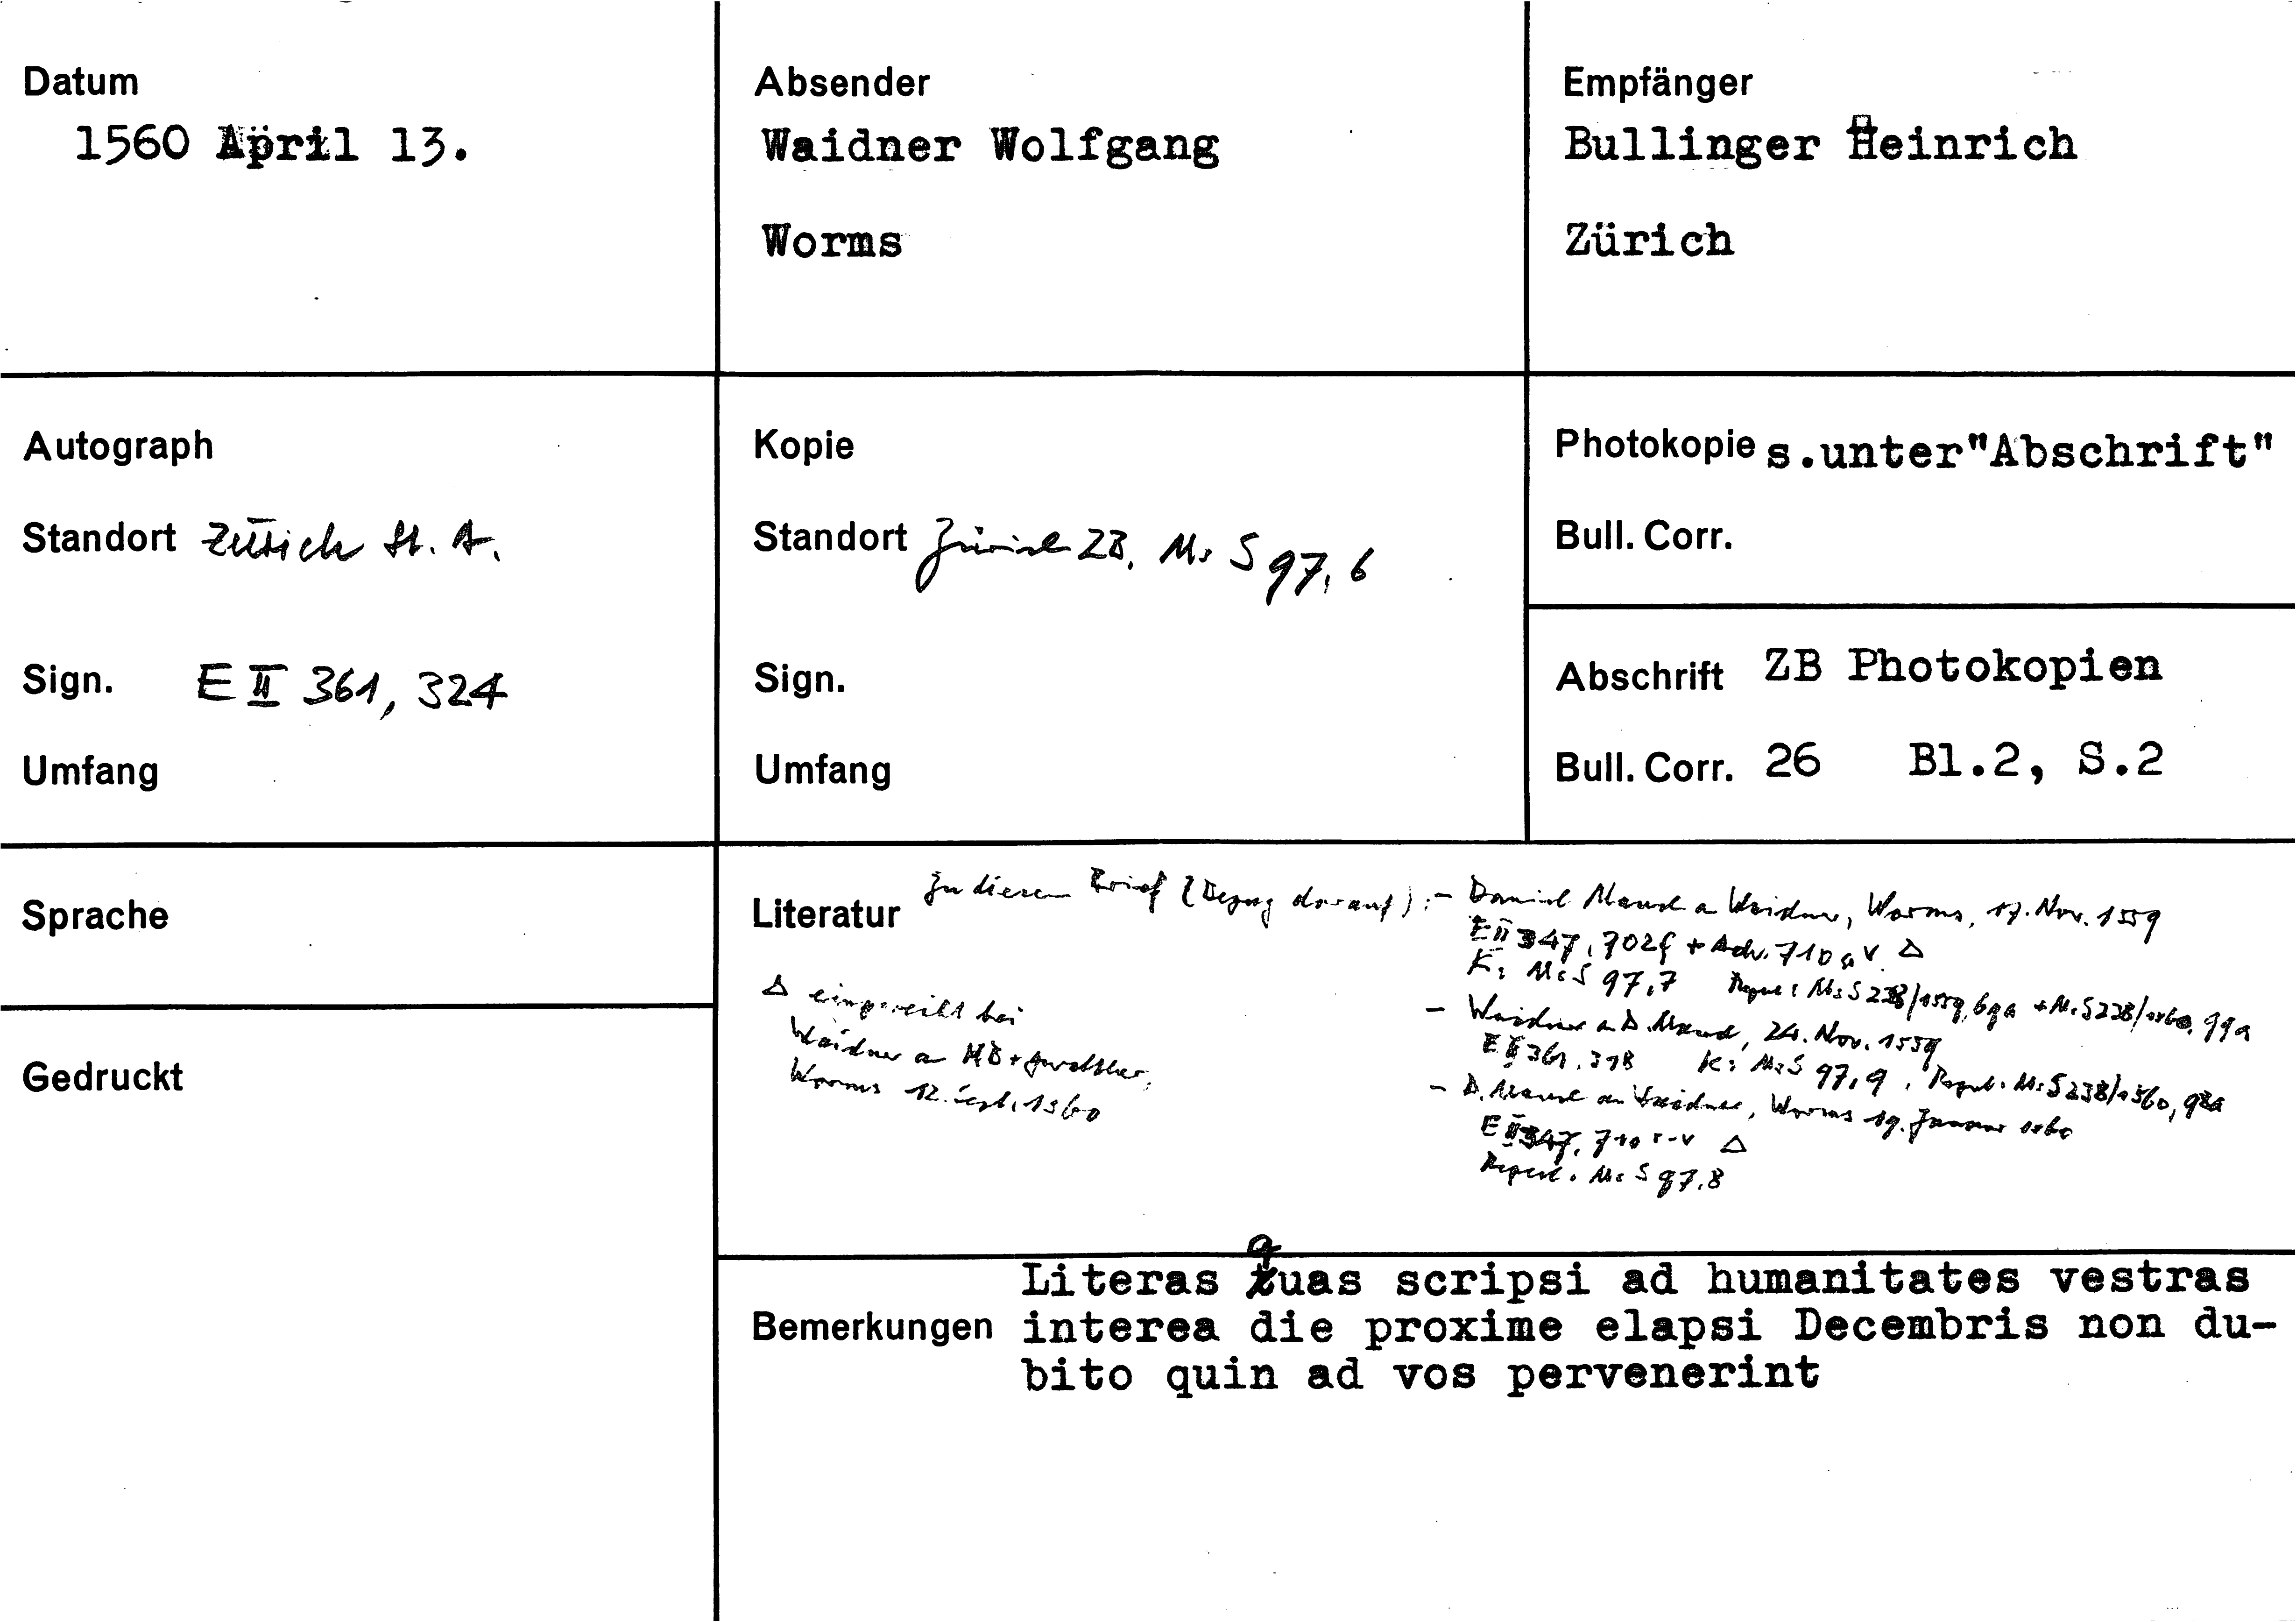 Datum
1560 April 13.
Absender
Waidner Wolfgang
Worms
Empfänger
Bullinger Heinrich
Zürich
Autograph
Standort Zürich St. A.
Sign. E II 361, 324
Umfang
Kopie
Standort Zürich ZB, Ms S 97, 6
Sign.
Umfang
Photokopie s.unter"Abschrift"
Bull. Corr.
Abschrift ZB Photokopien
Bull. Corr. 26 Bl.2, S.2
Sprache
Gedruckt
Literatur Zu diesem Brief (Bezug darauf): - Daniel Mauch an Waidner, Worms, 17. Nov. 1559
E II 347, 702f + Adr. 710 a v Δ
K: Ms S 97,7 Ms S 238/1559, 69a + Ms S 238/1560, 99a
- Waidner an D. Mauch, 24. Nov. 1559
E II 361, 318 K: Ms S 97, 9, Regest: Ms S 238/1560, 98a
- D. Mauch an Waidner, Worms 19. Januar 1560
E II 347, 710 r-v Δ
Regest: Ms S 97,8
Δ eingereiht bei
Waidner an HB + Gwalther,
Worms 12. Sept. 1560
Bemerkungen
Literas quas scripsi ad humanitates vestras
interea die proxime elapsi Decembris non du-
bito quin ad vos pervenerint